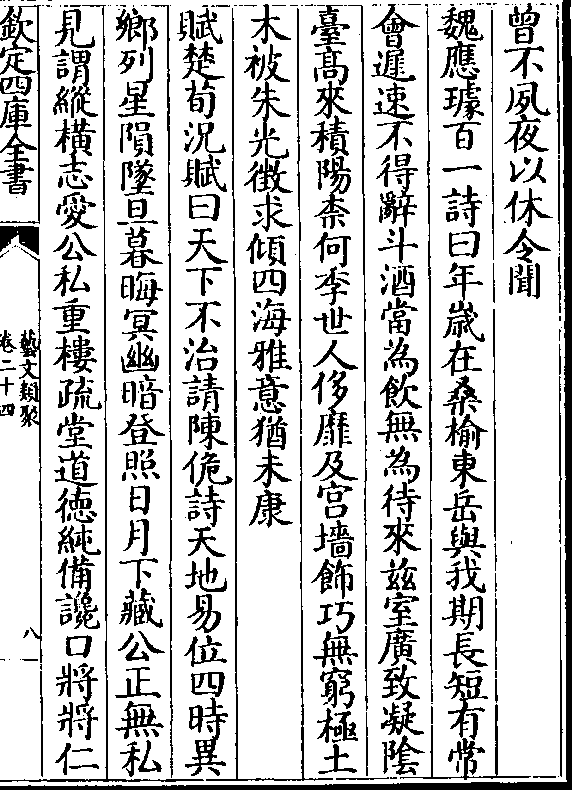 曾不夙夜以休令聞
魏應璩百一詩曰年嵗在桑榆東岳與我期長短有常
會遲速不得辭斗酒當為飲無為待來兹室廣致凝隂
臺髙來積陽柰何季世人侈靡及宫墻飾巧無窮極土
木被朱光徴求傾四海雅意猶未康
賦楚荀況賦曰天下不治請陳佹詩天地易位四時異
鄉列星隕墜旦暮晦冥幽暗登照日月下藏公正無私
見謂縱横志愛公私重樓疏堂道徳純備讒口將將仁
欽定四庫全書
藝文類聚
卷二十四
八